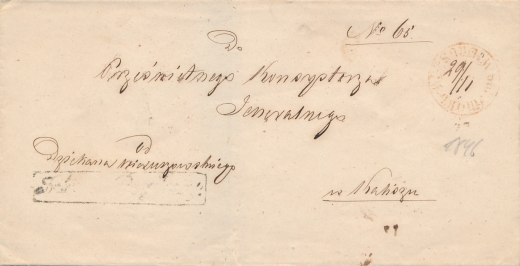 No 65.
Do
Prześwietnego Konsystorza
Jeneralnego
29/11
1846
od
Dziekana Wieruszowskiego
w Kaliszu